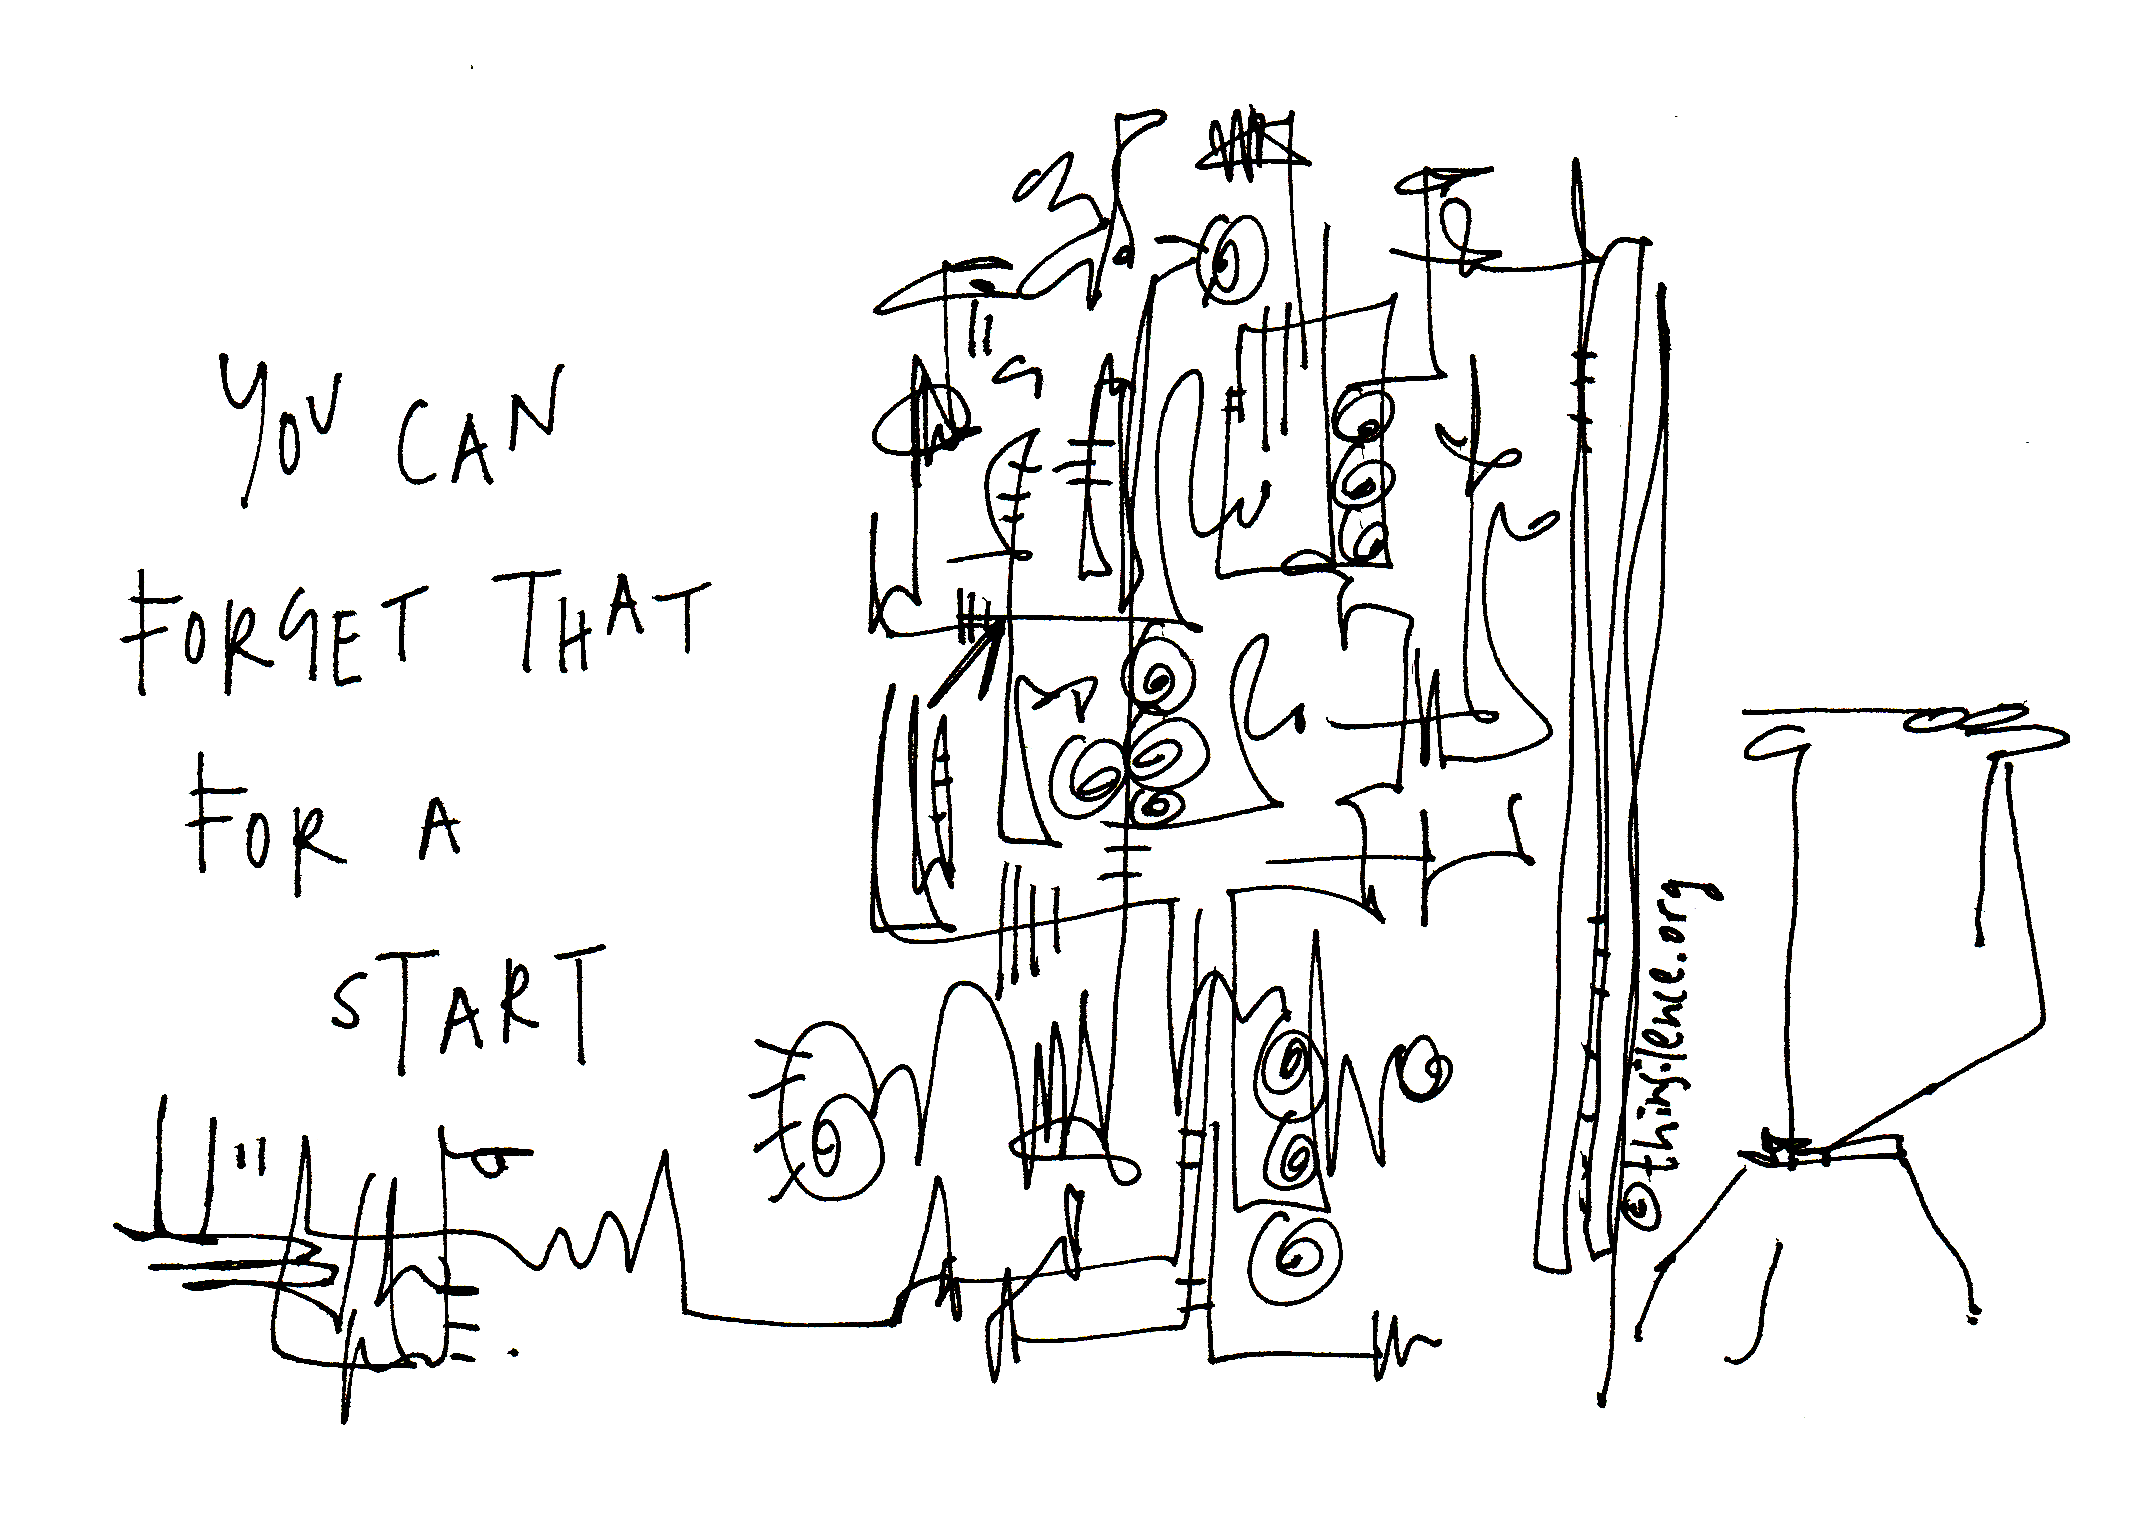 YOU CAN
FORGET THAT
FOR A
START
© thinsilence.org